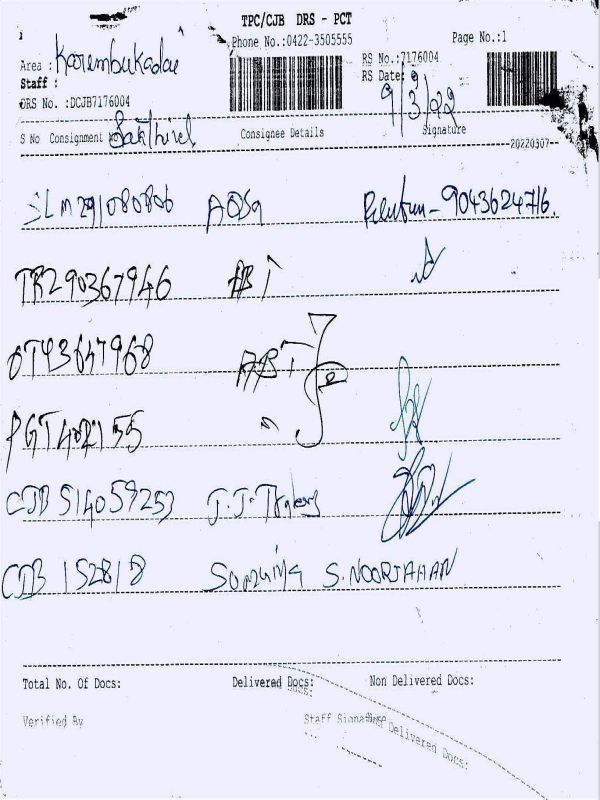 TPC/CJB DRS - PCT
Phone No.:0422-3505555 Page No.:1
Area : Karembukadai RS No.:7176004
Staff : RS Date: 9/3/22
DRS No. :DCJB7176004
S No Consignment Sakthivel Consignee Details Signature
20220307
SLM291080806 9043624716.
TR290367946 ABi
OT43647968 ABi
PGT402155 "
CJB 514059253 J.J.
CJB 152818 S. NOORJAHAN
Total No. Of Docs: Delivered Docs: Non Delivered Docs:
Docs:
Verified By Staff Signature
Delivered Docs: